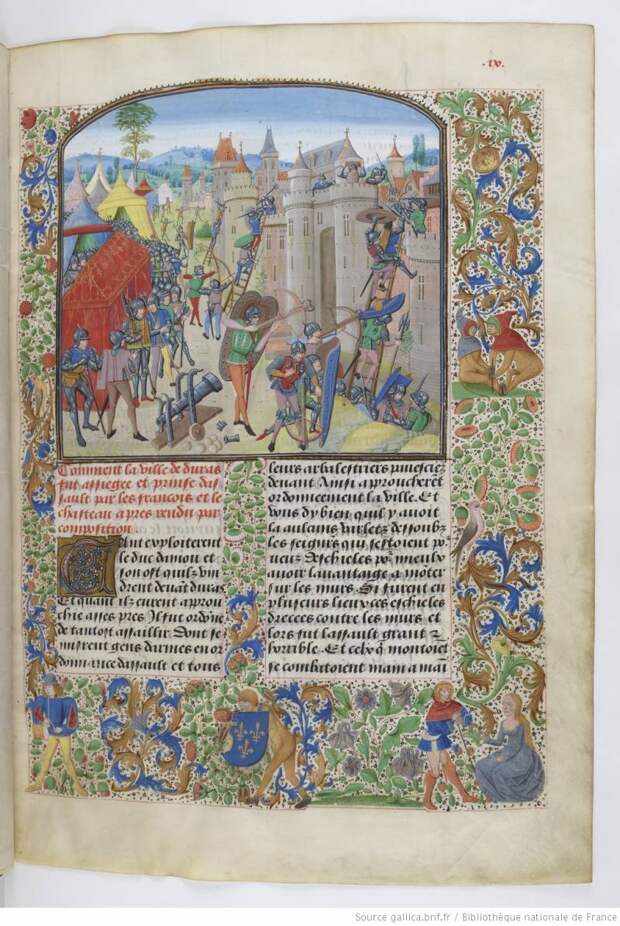 .ix.
Comment la ville de duras
fut assiegee et prinse das
sault par les francois et le
chasteau apres rendu par
composition.
Tant exploiterent
le duc daniou et
son ost quilz vin
drent deuāt duras
Et quant ilz eurent aprou
chie asses pres Il fut ordōne
de tantost assaillir. Dont se
mirent gens darmes en or
donnance dassault et tous
leurs arbalestriers
deuant Ainsi aproucherēt
ordonneement la ville. Et
vous dy bien quil y auoit
la aulcuns varletz dessoubz
les seigñrs qui sestoient po
ueuz deschieles po᷑ mieulx
auoir lauantaige a mōter
sur les murs. Si furent en
plusieurs lieux ces eschieles
drecees contre les murs et
lors fut lassault grant &
horrible. Et ceulx q̄ montoiēt
se combatoient main a mai
Source gallica.bnf.fr / Bibliothèque nationale de France